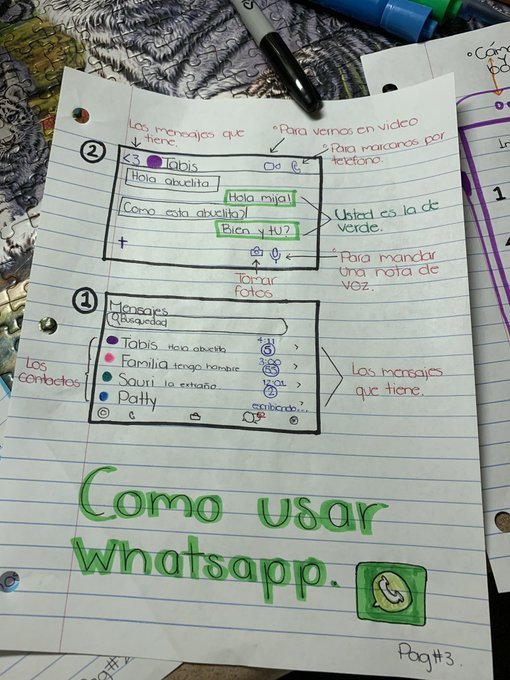 • Cómo
y
Los mensajes que
tiene.
• Para vernos en video
• Para marcarnos por
teléfono.
2
<3 Tabis
Hola abuelita
Hola mija!
Como esta abuelita?
Bien y tu?
Usted es la de
verde.
+
Tomar
fotos
• Para mandar
una nota de
voz.
1
Mensajes
Busquedad
Tabis Hola abuelita 4:11 5 >
Familia tengo hambre 3:00 55 >
Sauri la extraño 12:01 2 >
Patty escribiendo... >
Los
contactos
Los mensajes
que tiene.
Como usar
Whatsapp.
Pag#3.
Pag#2
1